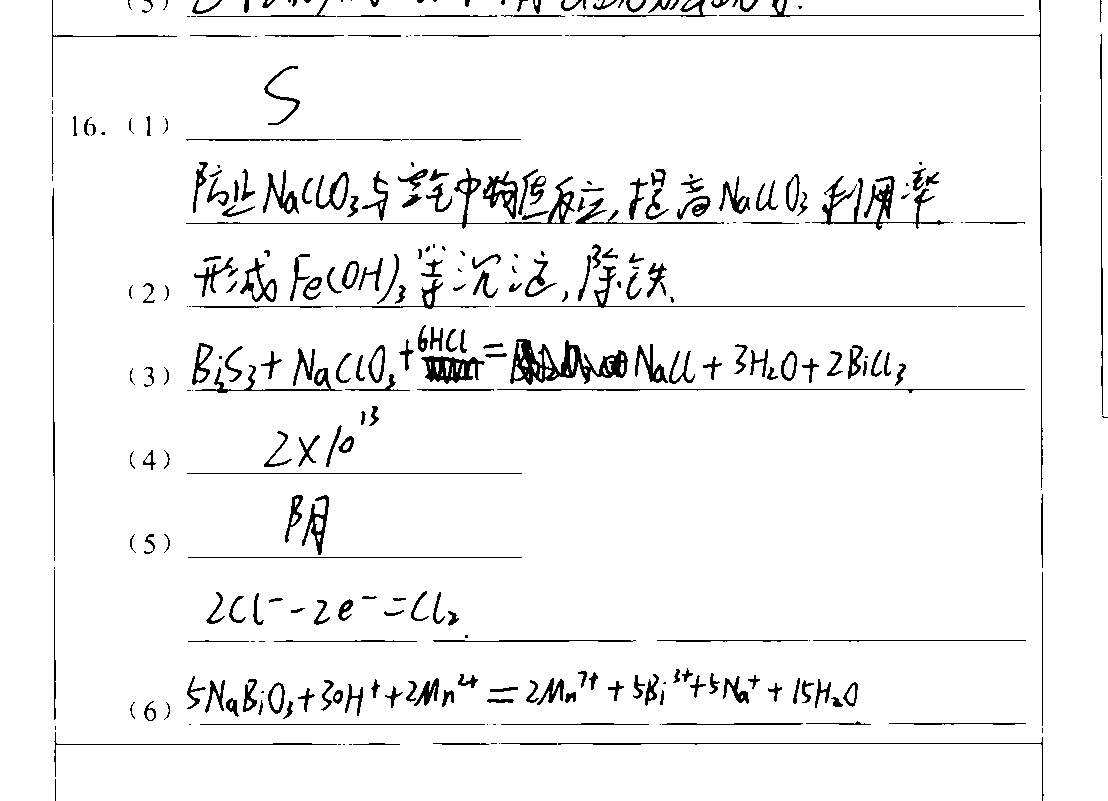 (3)
16. (1) S
防止NaClO₃与空气中物质反应,提高NaClO₃利用率
(2) 形成Fe(OH)₃等沉淀,除铁.
(3) Bi₂S₃ + NaClO₃ + 6HCl = NaCl + 3H₂O + 2BiCl₃.
(4) 2×10¹³
(5) 阴
2Cl⁻ - 2e⁻ = Cl₂.
(6) 5NaBiO₃ + 30H⁺ + 2Mn²⁺ = 2Mn⁷⁺ + 5Bi³⁺ + 5Na⁺ + 15H₂O